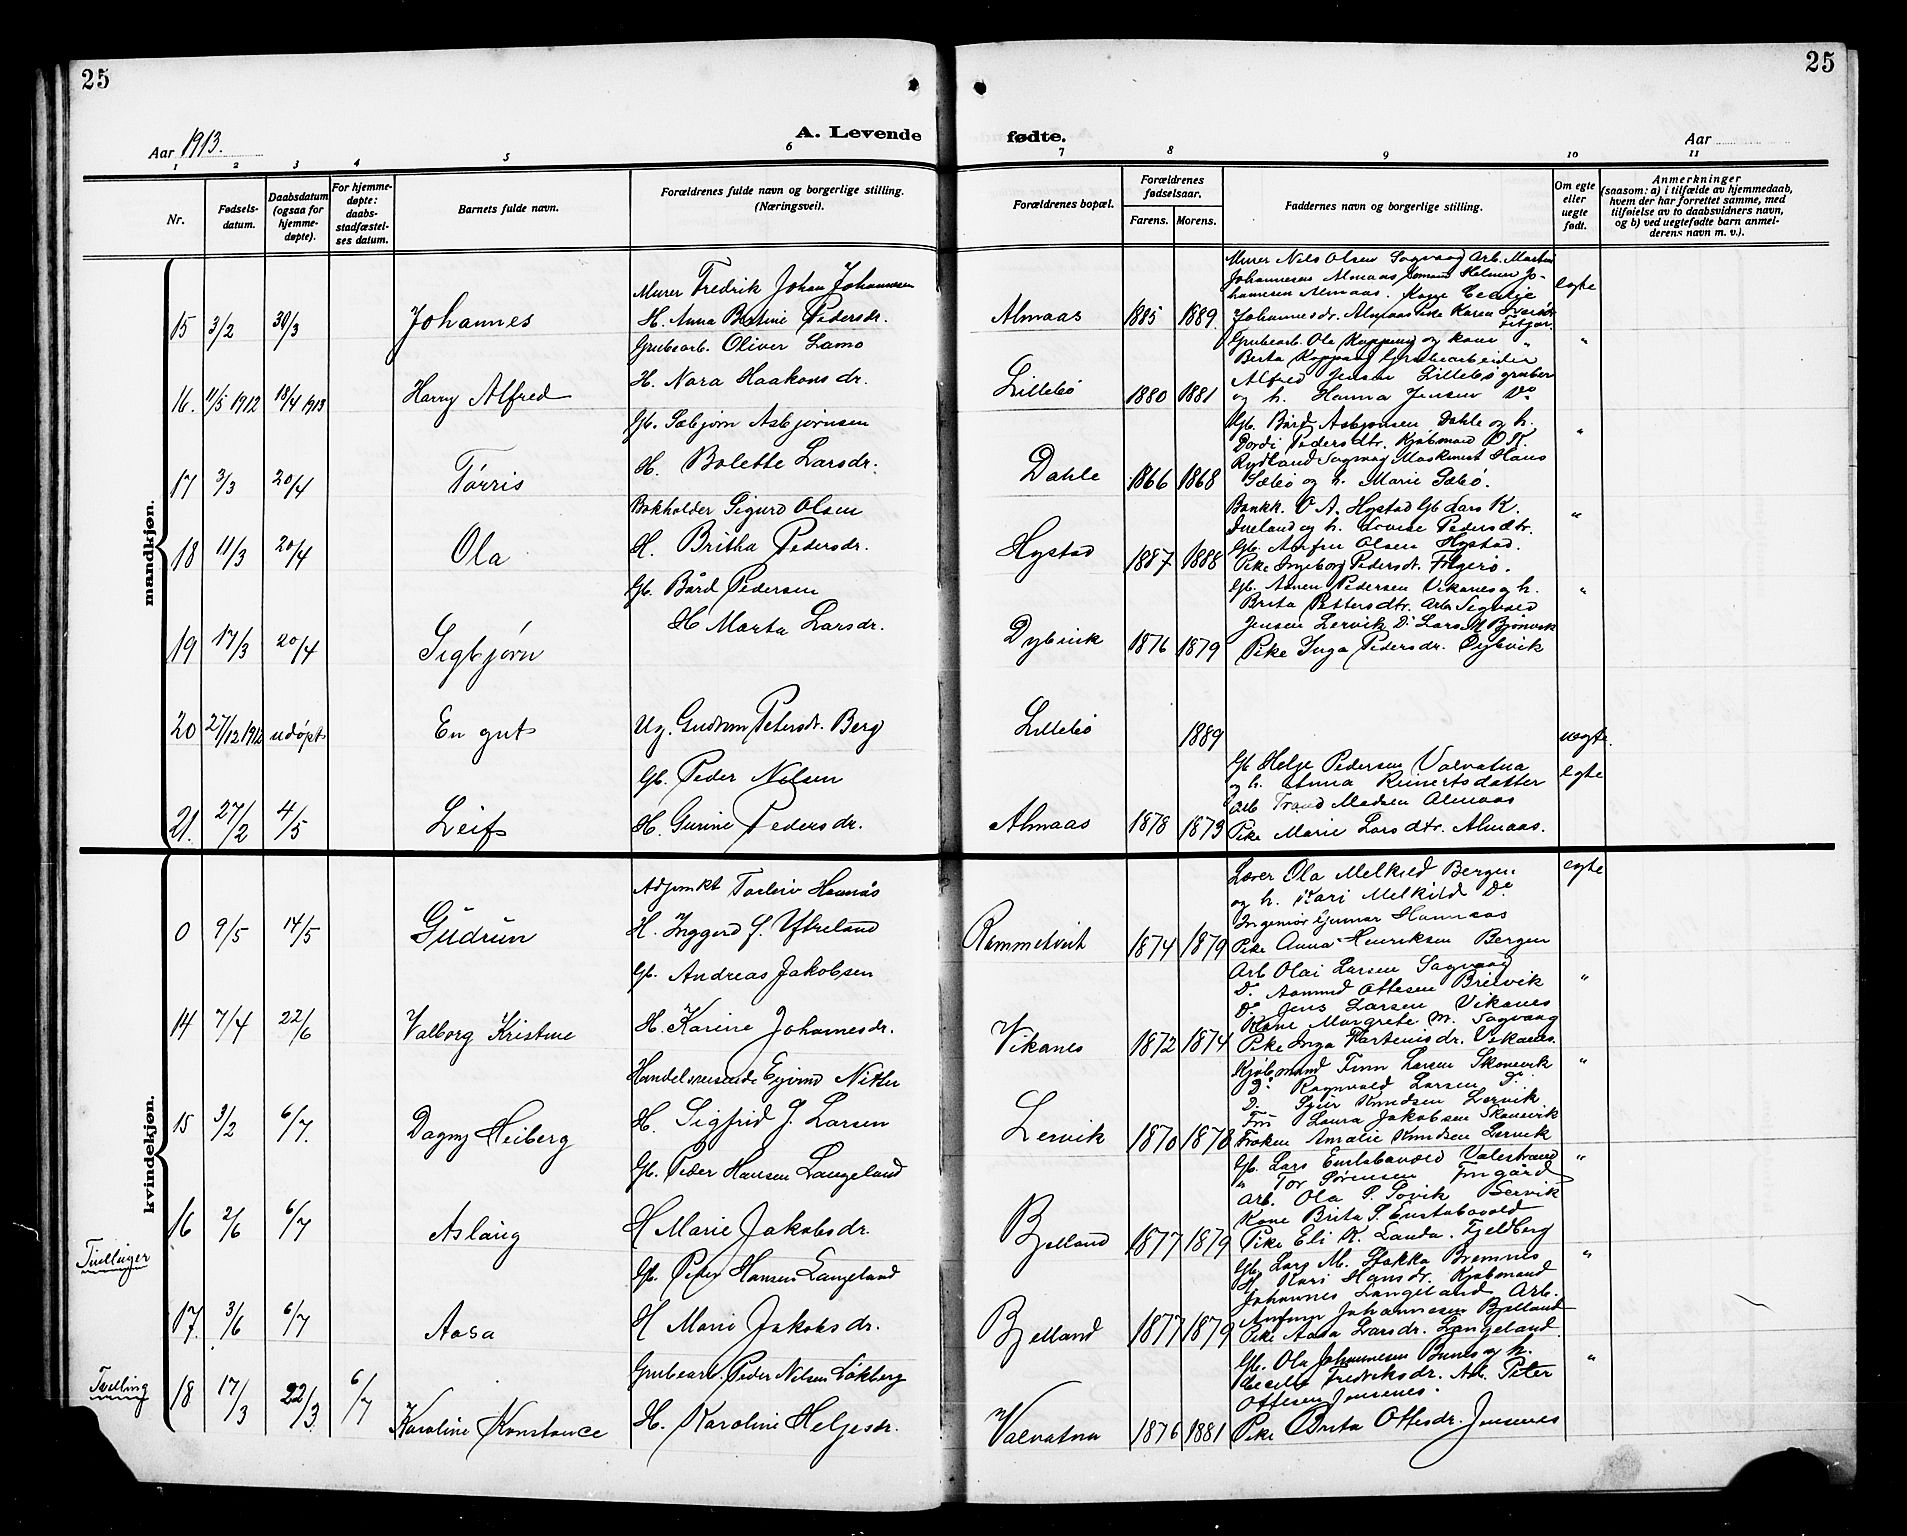 25
25
A. Levende fødte.
Aar 1913.
Aar
1 2 3 4 5 6 7 8 9 10 11
Nr.
Fødsels-
datum.
Daabsdatum
(ogsaa for
hjemme-
døpte).
For hjemme-
døpte:
daabs-
stadfæstel-
ses datum.
Barnets fulde navn.
Forældrenes fulde navn og borgerlige stilling.
(Næringsvei).
Forældrenes bopæl.
Forældrenes
fødselsaar.
Farens. Morens.
Faddernes navn og borgerlige stilling.
Om egte
eller
uegte
født.
Anmerkninger
(saasom: a) i tilfælde av hjemmedaab,
hvem der har forrettet samme, med
tilføielse av to daabsvidners navn,
og b) ved uegtefødte barn anmel-
derens navn m. v.).
mandkjøn.
15 3/2 30/3 Johannes
Murer Fredrik Johan Johannesen
H. Anna Bertine Pedersdr.
Almaas 1885 1889
Murer Nils Olsen Sagvaag Arb. Martin
Johannesen Almaas Helmer Jo-
hannesen Almaas. Kone
Johannesdr. Almaas Pike Karen
Fitjar.
egte
16. 11/5 1912 13/4 1913 Harry Alfred
Grubearb. Oliver Lamo
H. Nora Haakonsdr.
Lillebö 1880 1881
Grubearb. Ola Koppang og kone
Berta Koppang Grubearbeider
Alfred Jensen Lillebö gruber
og h. Hanna Jensen Do
"
17 3/3 20/4 Tørris
Gb. Sæbjørn Asbjørnsen
H. Bolette Larsdr.
Dahle 1866 1868
Gb. Bård Asbjørnsen Dahle og h.
Dordi Pedersdtr. Kjøbmand O K
Rydland Sagvaag Maskinist Hans
Sæbö og h. Marie Sæbö.
"
18 11/3 20/4 Ola
Bokholder Sigurd Olsen
H. Britha Pedersdr.
Hystad 1887 1888
Bankk. O A. Hystad Gb Lars K.
og h. Lovise Pedersdtr.
Gb. Arnfin Olsen Hystad.
Pike Ingeborg Pedersdt.
"
19 17/3 20/4 Sigbjørn
Gb. Bård Pedersen
H Marta Larsdr.
Dybvik 1876 1879
Gb. Pedersen Vikanes og h.
Brita Pettersdtr. Arb. Sigvald
Jensen Lervik Do Lars M
Pike Inga Pedersdr. Dybvik
"
20 27/12 1912 udöpt En gut
Ug. Gudrun Petersdr. Berg
Lillebö 1889 uegte.
21. 27/2 4/5 Leif
Gb. Peder Nilsen
H. Gurine Pedersdr.
Almaas 1878 1873
Gb Helge Pedersen Valvatna
og h. Anna Reinertsdatter
Arb Trond Madsen Almaas
Pike Marie Larsdtr. Almaas.
egte
kvindekjøn.
0 9/5 14/5 Gudrun
Adjunkt Torleiv Hannås
H. Inggerd G. Ystreland
1874 1879
Lærer Ola Melkild Bergen
og h. Kari Melkild Do
Ingeniör Gunnar Hannaas
Pike Anna Henriksen Bergen
egte
14 7/4 22/6 Valborg Kristine
Gb. Andreas Jakobsen
H. Karine Johannesdr.
Vikanes 1872 1874
Arb Olai Larsen Sagvaag
Do. Aamund Ottesen Breivik
Do. Jens Larsen Vikanes
Kone Margrete M. Sagvaag
Pike Inga Martinisdr. Vikanes.
"
15 3/2 6/7. Dagny Heiberg
Handelsreisende Eyvind Nitter
H. Sigfrid J. Larsen
Lervik 1870 1878
Kjøbmand Finn Larsen Skonevik
Do. Ragnvald Larsen Do
Do. Sjur Knudsen Lervik
Fru Laura Jakobsen Skonevik
Fröken Amalie Knudsen Lervik
"
Tvillinger
16 2/6 6/7 Aslaug
Gb. Peder Hansen Langeland
H Marie Jakobsdr.
Bjelland 1877 1879
Gb. Lars Eustabøvold Valestrand
" Tor Sørensen
Arb. Ola P. Lervik
Kone Brita S. Eustabøvold
Pike Eli K. Landa. Fjeldberg
"
17. 3/6 6/7 Aasa
Gb. Peder Hansen Langeland
H Marie Jakobsdr.
Bjelland 1877 1879
Gb. Lars M. Stokka Bremnes
H. Kari Hansdr. Kjøbmand
Johannes Langeland Arb.
Arnfinn Johannesen Bjelland
Pike Aasa Larsdr. Langeland.
"
Tvilling
18 17/3 22/3. 6/7 Karoline Konstance
Grubearb. Peder Nilsen Løkberg
H. Karoline Helgesdr.
Valvatna 1876 1881
Gb. Ola Johannesen og h.
Cecilie Fredriksdr. Arb. Peter
Ottesen Jensenes.
Pike Brita Ottesdr. Jensenes
"